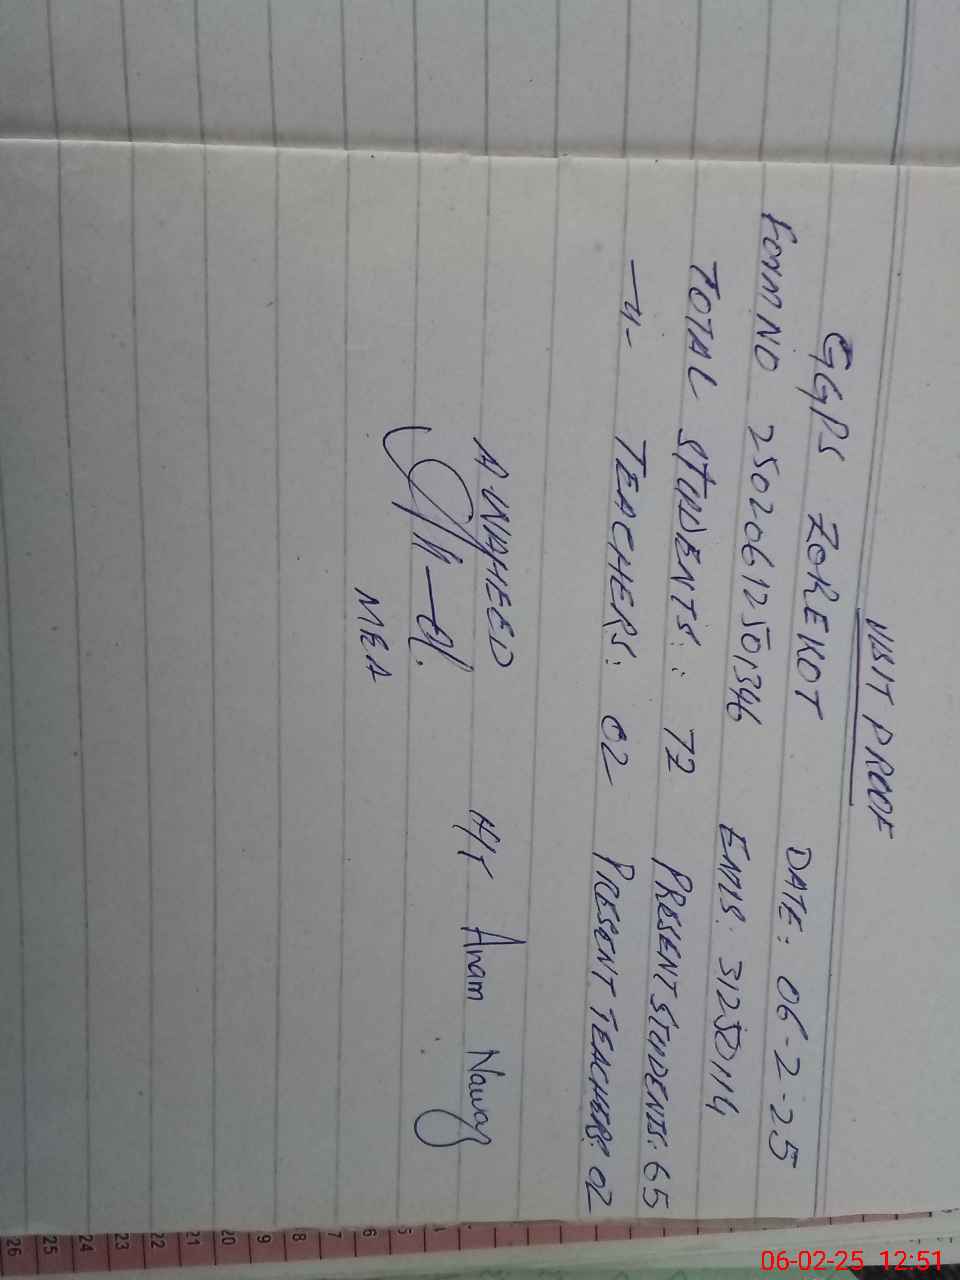 VISIT PROOF
GGPS ZOREKOT DATE: 06-2-25
Form NO 25020612501346 Emis: 31250114
TOTAL STUDENTS: : 72 PRESENT STUDENTS: 65
—"— TEACHERS: 02 PRESENT TEACHERS: 02
A WAHEED H/T Anam Nawaz
MEA
26 25 24 23 22 21 20 9 8 7 6 5
06-02-25 12:51